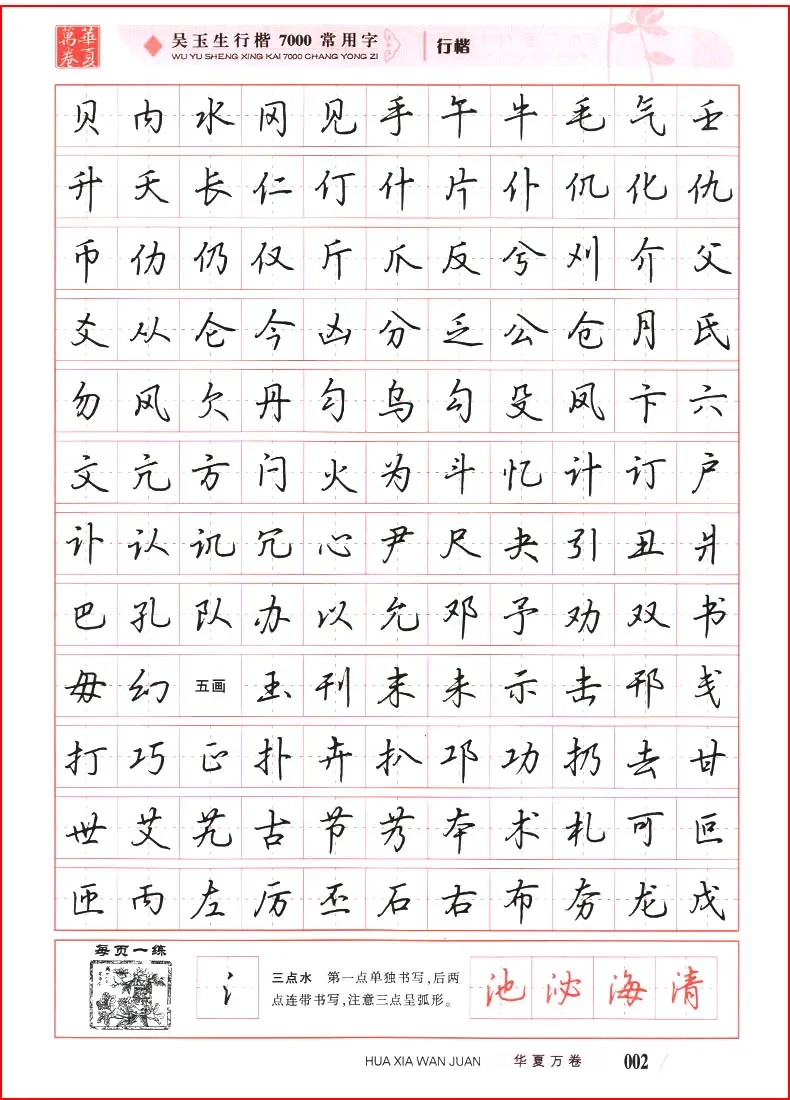 華夏
萬卷
吴玉生行楷 7000 常用字 行楷
WU YU SHENG XING KAI 7000 CHANG YONG ZI
贝 内 水 冈 见 手 午 牛 毛 气 壬
升 夭 长 仁 仃 什 片 仆 仉 化 仇
币 仂 仍 仅 斤 爪 反 兮 刈 介 父
爻 从 仑 今 凶 分 乏 公 仓 月 氏
勿 风 欠 丹 匀 乌 勾 殳 凤 卞 六
文 亢 方 闩 火 为 斗 忆 计 订 户
讣 认 讥 冗 心 尹 尺 夬 引 丑 爿
巴 孔 队 办 以 允 邓 予 劝 双 书
毋 幻 五画 玉 刊 末 未 示 击 邗 戋
打 巧 正 扑 卉 扒 邛 功 扔 去 甘
世 艾 艽 古 节 艿 本 术 札 可 叵
匝 丙 左 厉 丕 石 右 布 夯 龙 戊
每页一练
氵
三点水 第一点单独书写,后两
点连带书写,注意三点呈弧形。
池 泌 海 清
HUA XIA WAN JUAN 华夏万卷 002